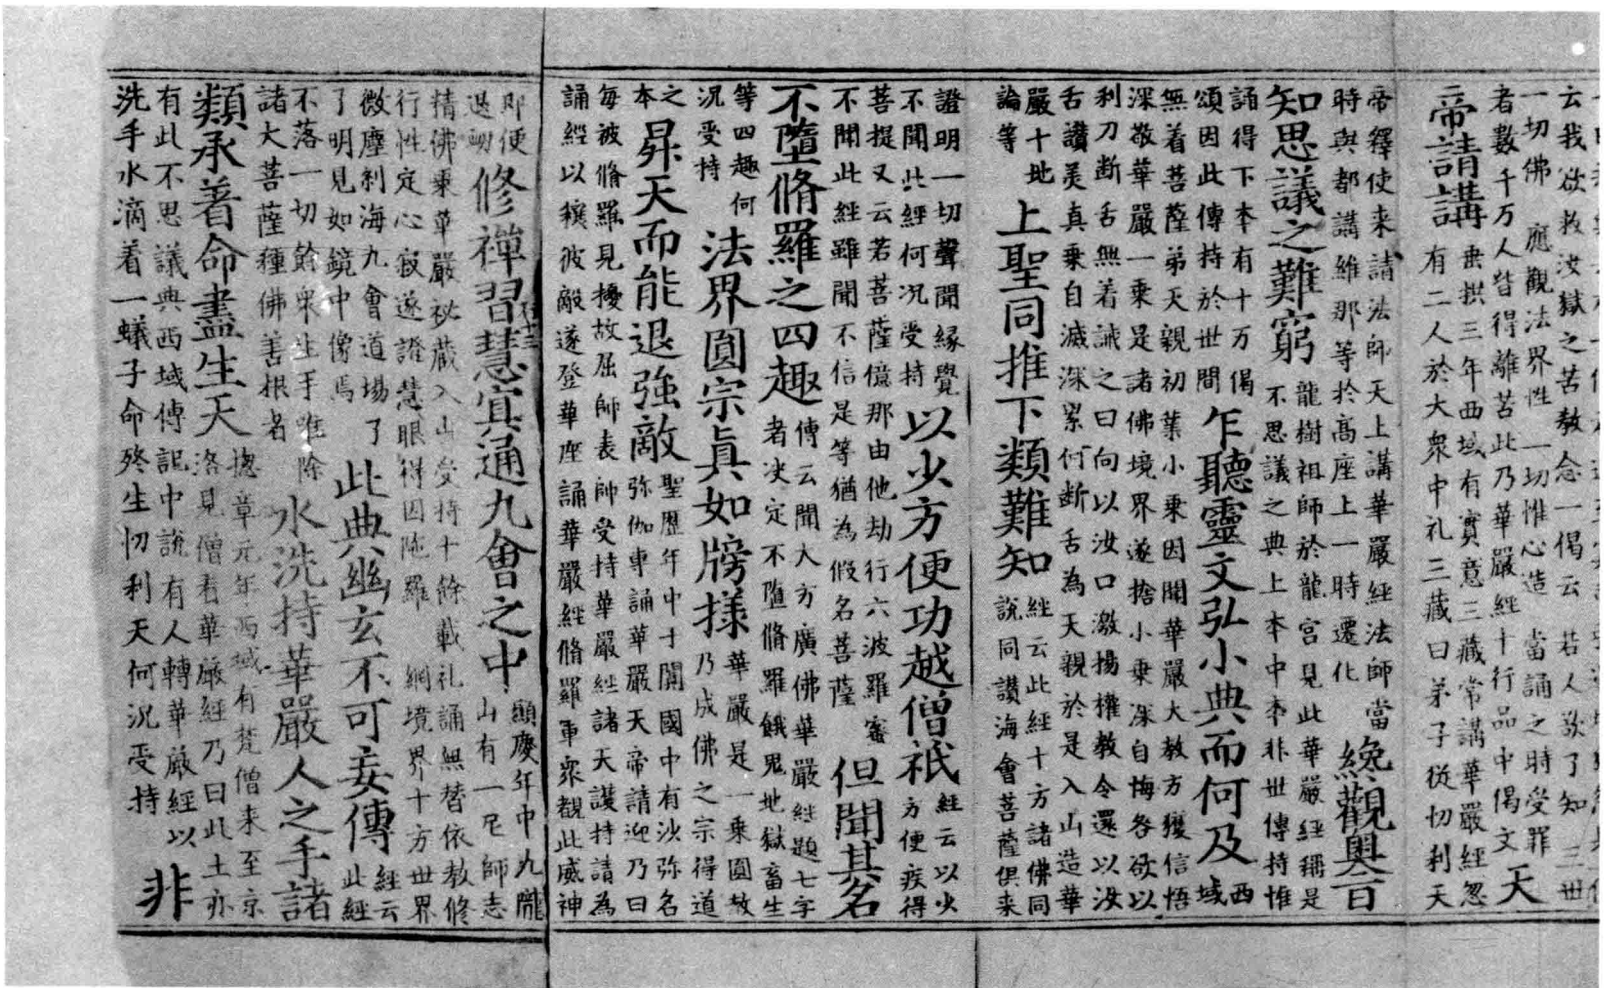 云我欲救汝獄之苦教念一偈云若人欲了知三世
一切佛應觀法界性一切惟心造當誦之時受罪
者數千万人皆得離苦此乃華嚴經十行品中偈文
天
帝請講
垂拱三年西域有實意三藏常講華嚴經忽
有二人於大衆中礼三藏曰弟子從忉利天
帝釋使来請法師天上講華嚴經法師當
時與都講維那等於高座上一時遷化
纔觀奧旨
知思議之難窮
龍樹祖師於龍宮見此華嚴經稱是
不思議之典上本中本非世傳持惟
誦得下本有十万偈
頌因此傳持於世間
乍聽靈文弘小典而何及
西
域
無着菩薩弟天親初業小乘因聞華嚴大教方獲信悟
深敬華嚴一乘是諸佛境界遂捨小乘深自悔咎欲以
利刀断舌無着誡之曰向以汝口激揚權教今還以汝
舌讚美真乘自滅深累何断舌為天親於是入山造華
嚴十地
論等
上聖同推下類難知
經云此經十方諸佛同
說同讃海會菩薩俱来
證明一切聲聞緣覺
不聞此經何況受持
以少方便功越僧祇
經云以少
方便疾得
菩提又云若菩薩億那由他劫行六波羅蜜
不聞此經雖聞不信是等猶為假名菩薩
但聞其名
不墮脩羅之四趣
傳云聞大方廣佛華嚴經題七字
者决定不墮脩羅餓鬼地獄畜生
等四趣何
況受持
法界圓宗真如牓樣
華嚴是一乘圓教
乃成佛之宗得道
之
本
昇天而能退強敵
聖曆年中于闐國中有沙弥名
弥伽專誦華嚴天帝請迎乃曰
每被脩羅見擾故屈師表師受持華嚴經諸天護持請為
誦經以穰彼敵遂登華座誦華嚴經脩羅軍衆覩此威神
即便
退衂
修禪習慧冥通九會之中
顯慶年中九隴
山有一尼師志
精佛乘華嚴祕藏入山受持十餘載礼誦無替依教修
行性定心寂遂證慧眼得因陁羅網境界十方世界
微塵剎海九會道場了
了明見如鏡中像焉
此典幽玄不可妄傳
經云
此經
不落一切餘衆生手唯除
諸大菩薩種佛善根者
水洗持華嚴人之手諸
類承着命盡生天
揔章元年西域有梵僧来至京
洛見僧看華嚴經乃曰此土亦
有此不思議典西域傳記中說有人轉華嚴經以
洗手水滴着一蟻子命終生忉利天何況受持
非